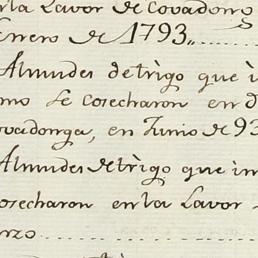 en la Lavor de Covadong
Enero de 1793
Almudes de trìgo que i
mo se cosecharon en d
ovadonga, en Junio de 93
Almudes de trìgo que im
cosecharon en la Lavor
nzo